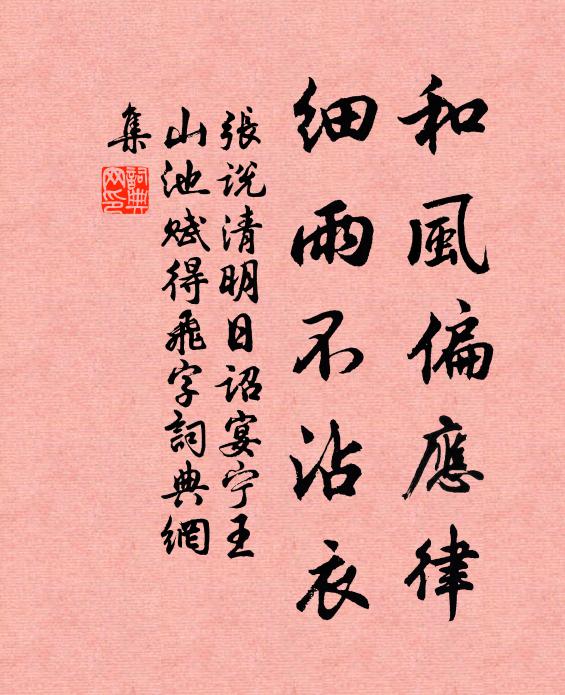 和風偏應律
細雨不沾衣
張説清明日詔宴宁王
山池赋得飛字詞典網
集
詞典网印